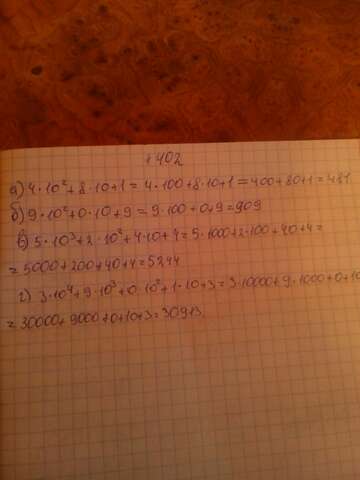 №402
а) 4·10²+8·10+1= 4·100+8·10+1=400+80+1=481
б) 9·10²+0·10+9=9·100+0+9=909
в) 5·10³+2·10²+4·10+4=5·1000+2·100+40+4=
=5000+200+40+4=5244
г) 3·10⁴+9·10³+0·10²+1·10+3=3·10000+9·1000+0+10
=30000+9000+0+10+3=39013